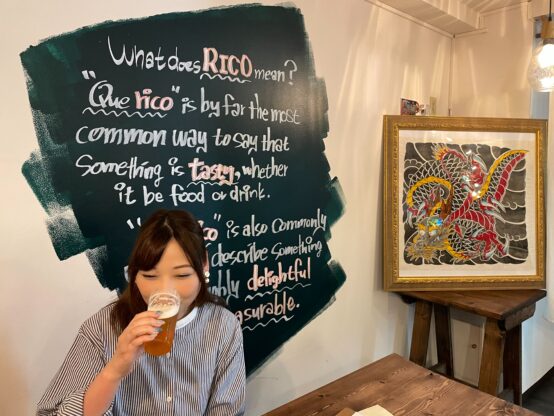 What does RICO mean?
"Que rico" is by far the most
common way to say that
Something is tasty, whether
it be food or drink.
is also commonly
describe something
delightful